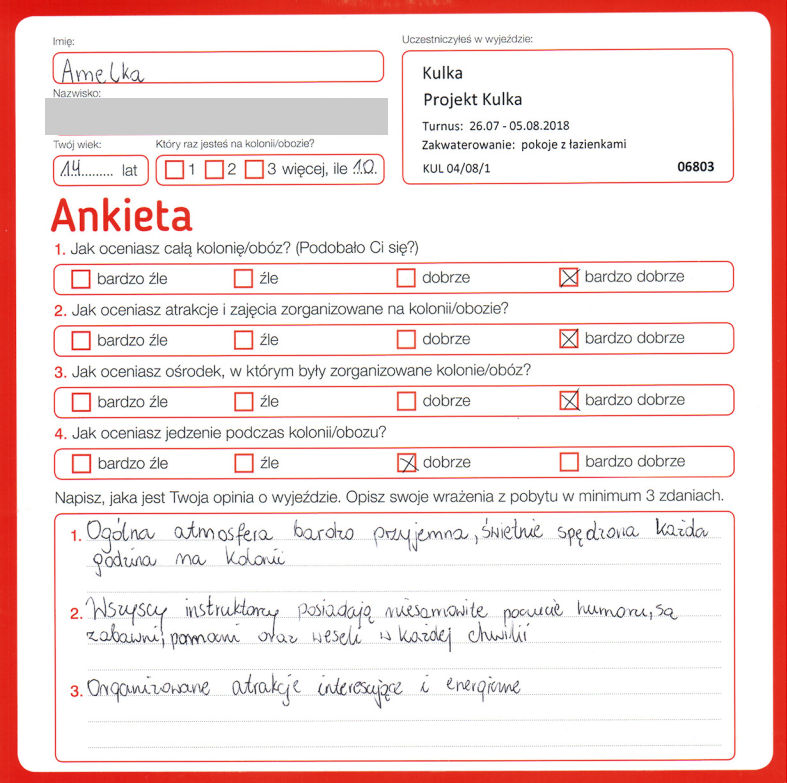 Imię:
Amelka
Nazwisko:
Twój wiek:
14 lat
Który raz jesteś na kolonii/obozie?
1 2 3 więcej, ile 10.
Uczestniczyłeś w wyjeździe:
Kulka
Projekt Kulka
Turnus: 26.07 - 05.08.2018
Zakwaterowanie: pokoje z łazienkami
KUL 04/08/1 06803
Ankieta
1. Jak oceniasz całą kolonię/obóz? (Podobało Ci się?)
bardzo źle źle dobrze bardzo dobrze
2. Jak oceniasz atrakcje i zajęcia zorganizowane na kolonii/obozie?
bardzo źle źle dobrze bardzo dobrze
3. Jak oceniasz ośrodek, w którym były zorganizowane kolonie/obóz?
bardzo źle źle dobrze bardzo dobrze
4. Jak oceniasz jedzenie podczas kolonii/obozu?
bardzo źle źle dobrze bardzo dobrze
Napisz, jaka jest Twoja opinia o wyjeździe. Opisz swoje wrażenia z pobytu w minimum 3 zdaniach.
1. Ogólna atmosfera bardzo przyjemna, świetnie spędzona każda
godzina na kolonii
2. Wszyscy instruktorzy posiadają niesamowite poczucie humoru, są
zabawni, pomocni oraz weseli w każdej chwilii
3. Organizowane atrakcje interesujące i energiczne